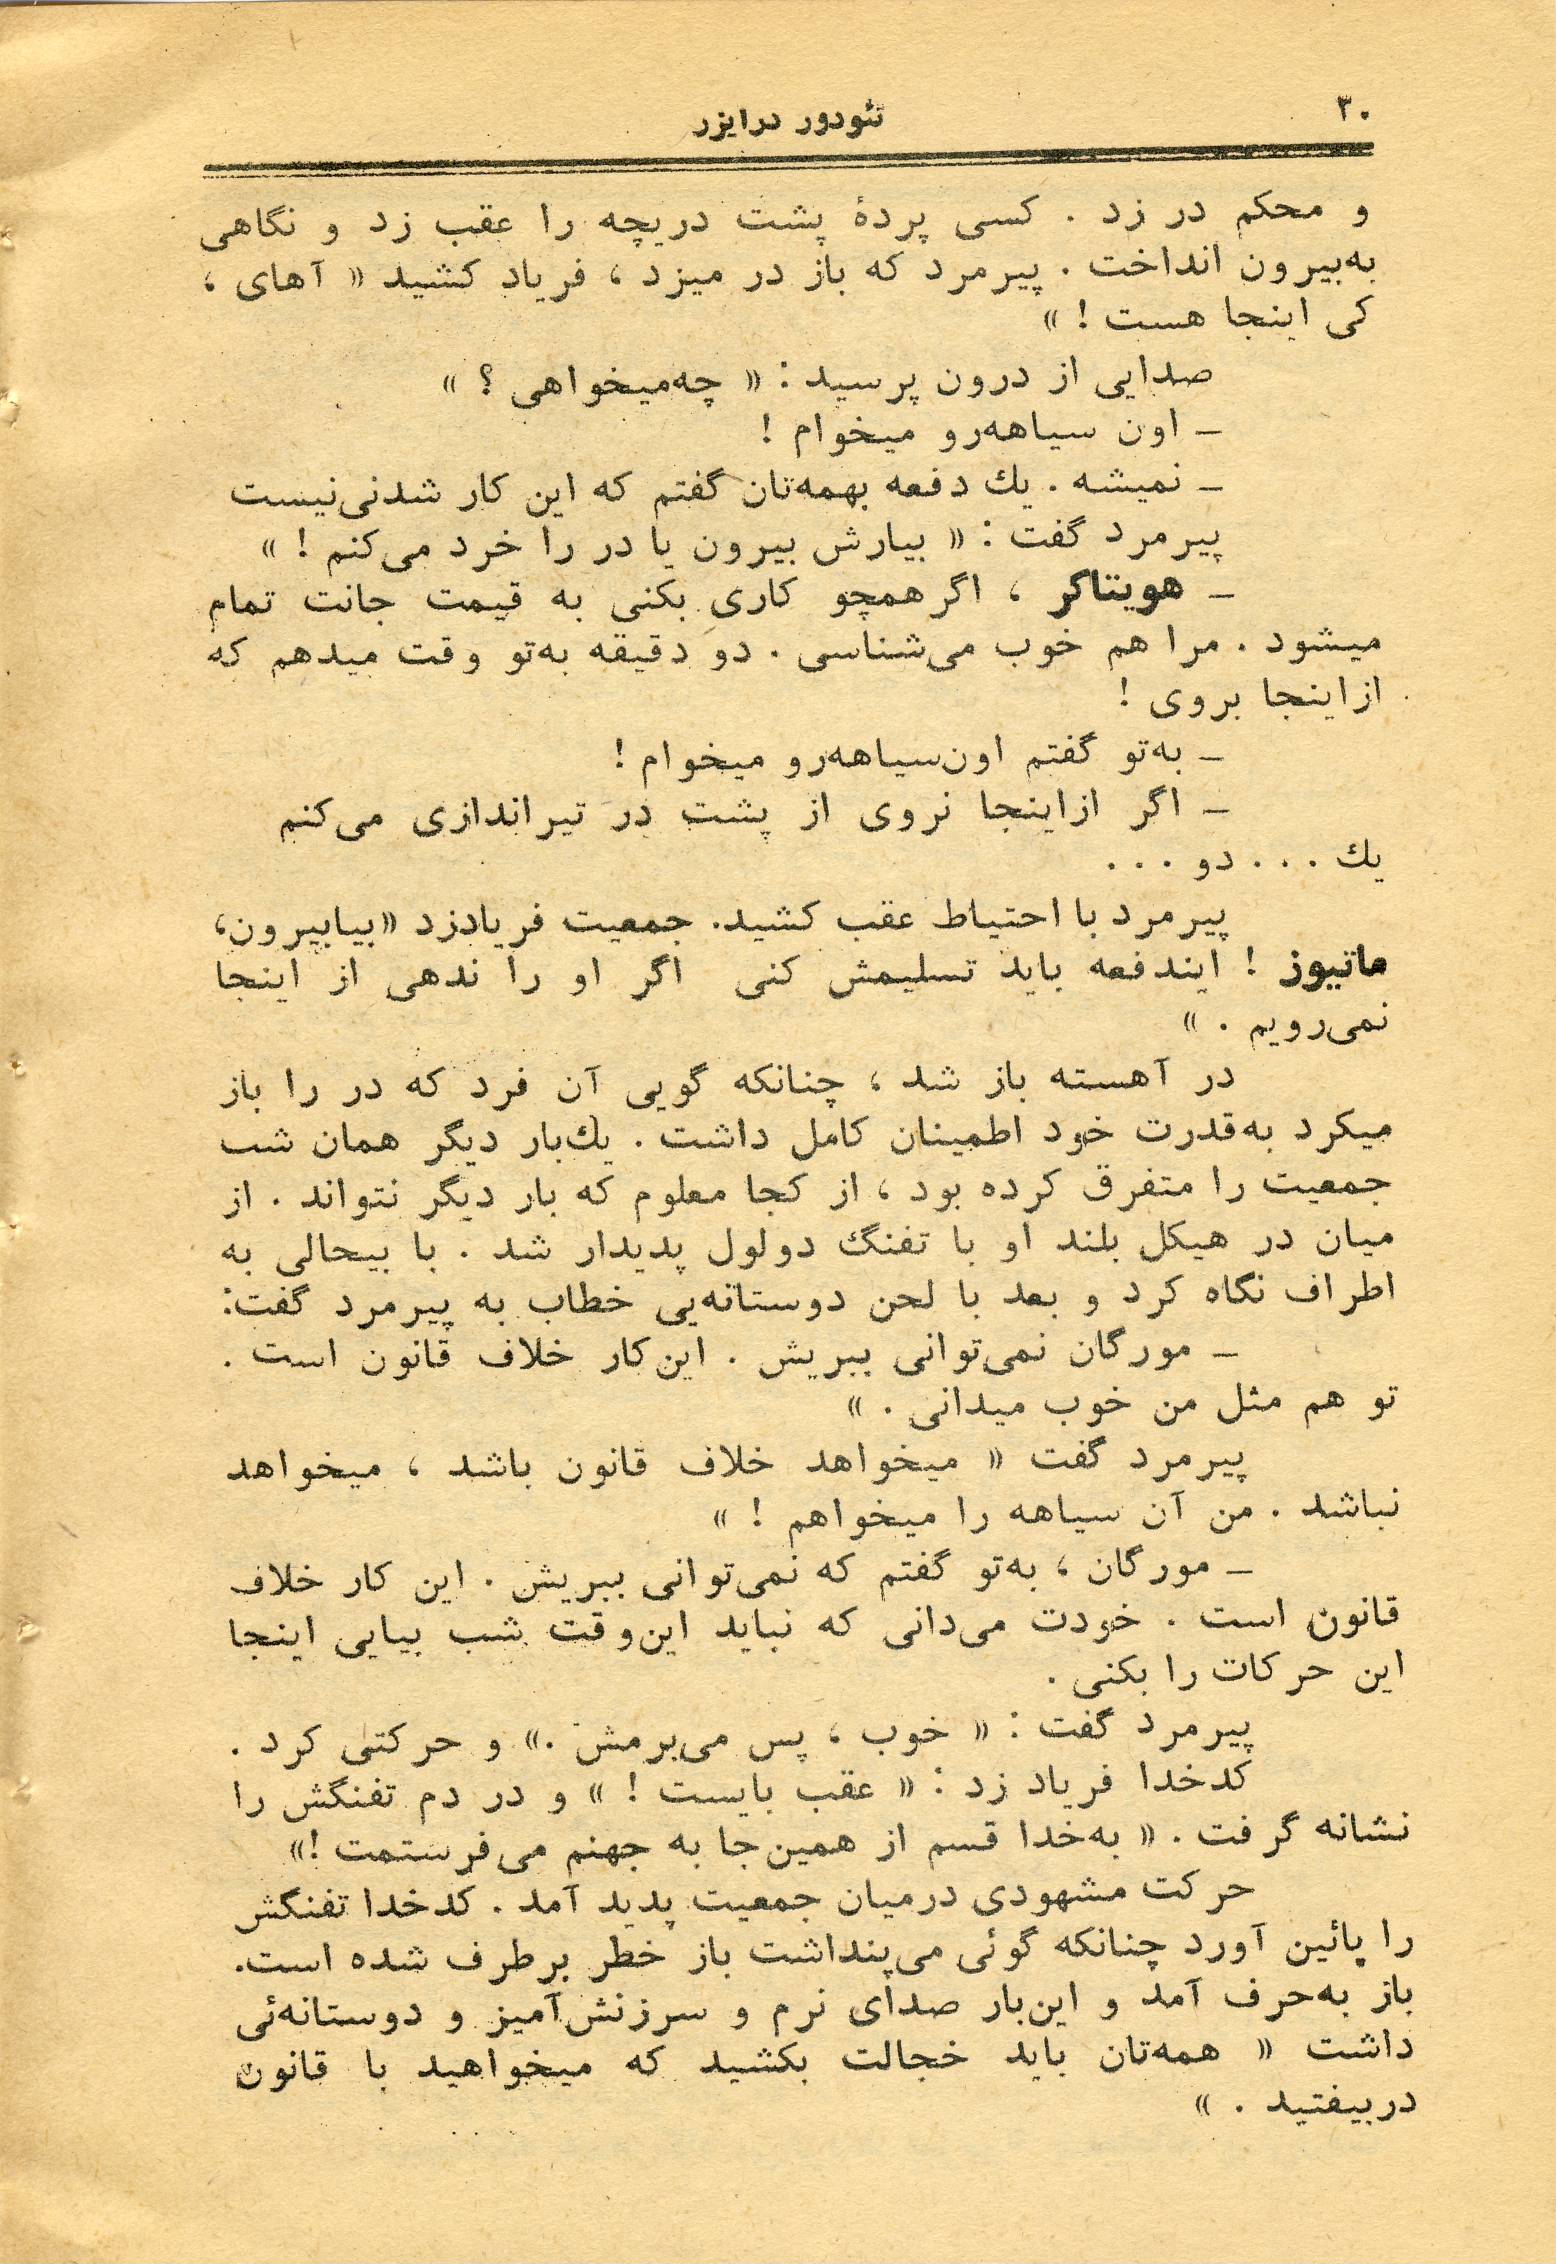 ۳۰
تئودور درایزر
و محکم در زد . کسی پردهٔ پشت دریچه را عقب زد و نگاهی
به‌بیرون انداخت . پیرمرد که باز در میزد ، فریاد کشید « آهای ،
کی اینجا هست ! »
صدایی از درون پرسید : « چه‌میخواهی ؟ »
– اون سیاهه‌رو میخوام !
– نمیشه . یك دفعه بهمه‌تان گفتم که این کار شدنی‌نیست
پیرمرد گفت : « بیارش بیرون یا در را خرد می‌کنم ! »
– هویتاکر ، اگر همچو کاری بکنی به قیمت جانت تمام
میشود . مرا هم خوب می‌شناسی . دو دقیقه به‌تو وقت میدهم که
ازاینجا بروی !
– به‌تو گفتم اون‌سیاهه‌رو میخوام !
– اگر ازاینجا نروی از پشت در تیراندازی می‌کنم
یك . . . دو . . .
پیرمرد با احتیاط عقب کشید. جمعیت فریادزد «بیابیرون،
ماتیوز ! ایندفعه باید تسلیمش کنی اگر او را ندهی از اینجا
نمی‌رویم . »
در آهسته باز شد ، چنانکه گویی آن فرد که در را باز
میکرد به‌قدرت خود اطمینان کامل داشت . یك‌بار دیگر همان شب
جمعیت را متفرق کرده بود ، از کجا معلوم که بار دیگر نتواند . از
میان در هیکل بلند او با تفنگ دولول پدیدار شد . با بیحالی به
اطراف نگاه کرد و بعد با لحن دوستانه‌یی خطاب به پیرمرد گفت:
– مورگان نمی‌توانی ببریش . این‌کار خلاف قانون است .
تو هم مثل من خوب میدانی . »
پیرمرد گفت « میخواهد خلاف قانون باشد ، میخواهد
نباشد . من آن سیاهه را میخواهم ! »
– مورگان ، به‌تو گفتم که نمی‌توانی ببریش . این کار خلاف
قانون است . خودت می‌دانی که نباید این‌وقت شب بیایی اینجا
این حرکات را بکنی .
پیرمرد گفت : « خوب ، پس می‌برمش .» و حرکتی کرد .
کدخدا فریاد زد : « عقب بایست ! » و در دم تفنگش را
نشانه گرفت . « به‌خدا قسم از همین‌جا به جهنم می‌فرستمت !»
حرکت مشهودی درمیان جمعیت پدید آمد . کدخدا تفنگش
را پائین آورد چنانکه گوئی می‌پنداشت باز خطر برطرف شده است.
باز به‌حرف آمد و این‌بار صدای نرم و سرزنش‌آمیز و دوستانه‌ئی
داشت « همه‌تان باید خجالت بکشید که میخواهید با قانون
دربیفتید . »